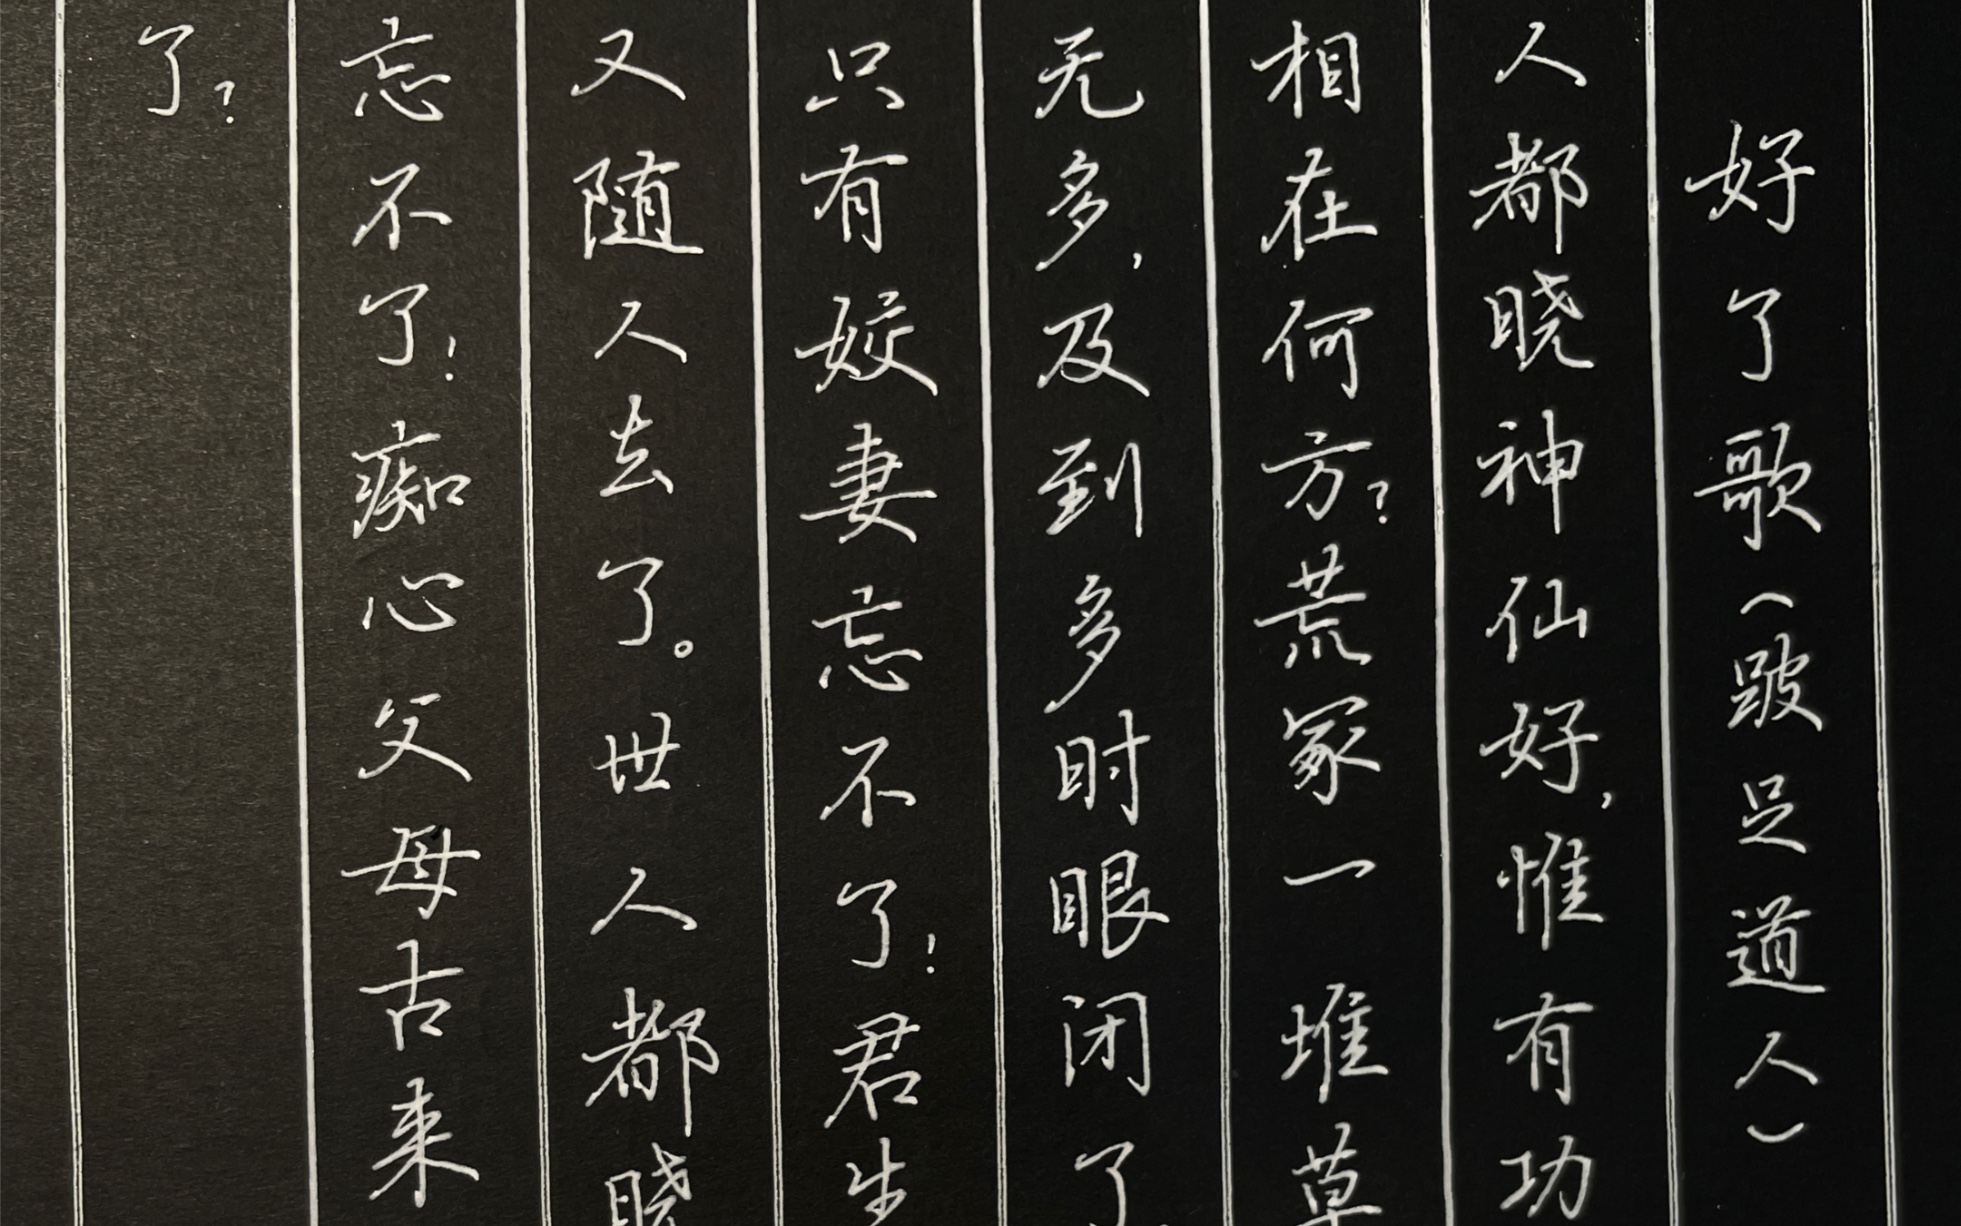 好了歌（跛足道人）
人都晓神仙好，惟有功
相在何方？荒冢一堆草
无多，及到多时眼闭了
只有姣妻忘不了！君生
又随人去了。世人都晓
忘不了！痴心父母古来
了？